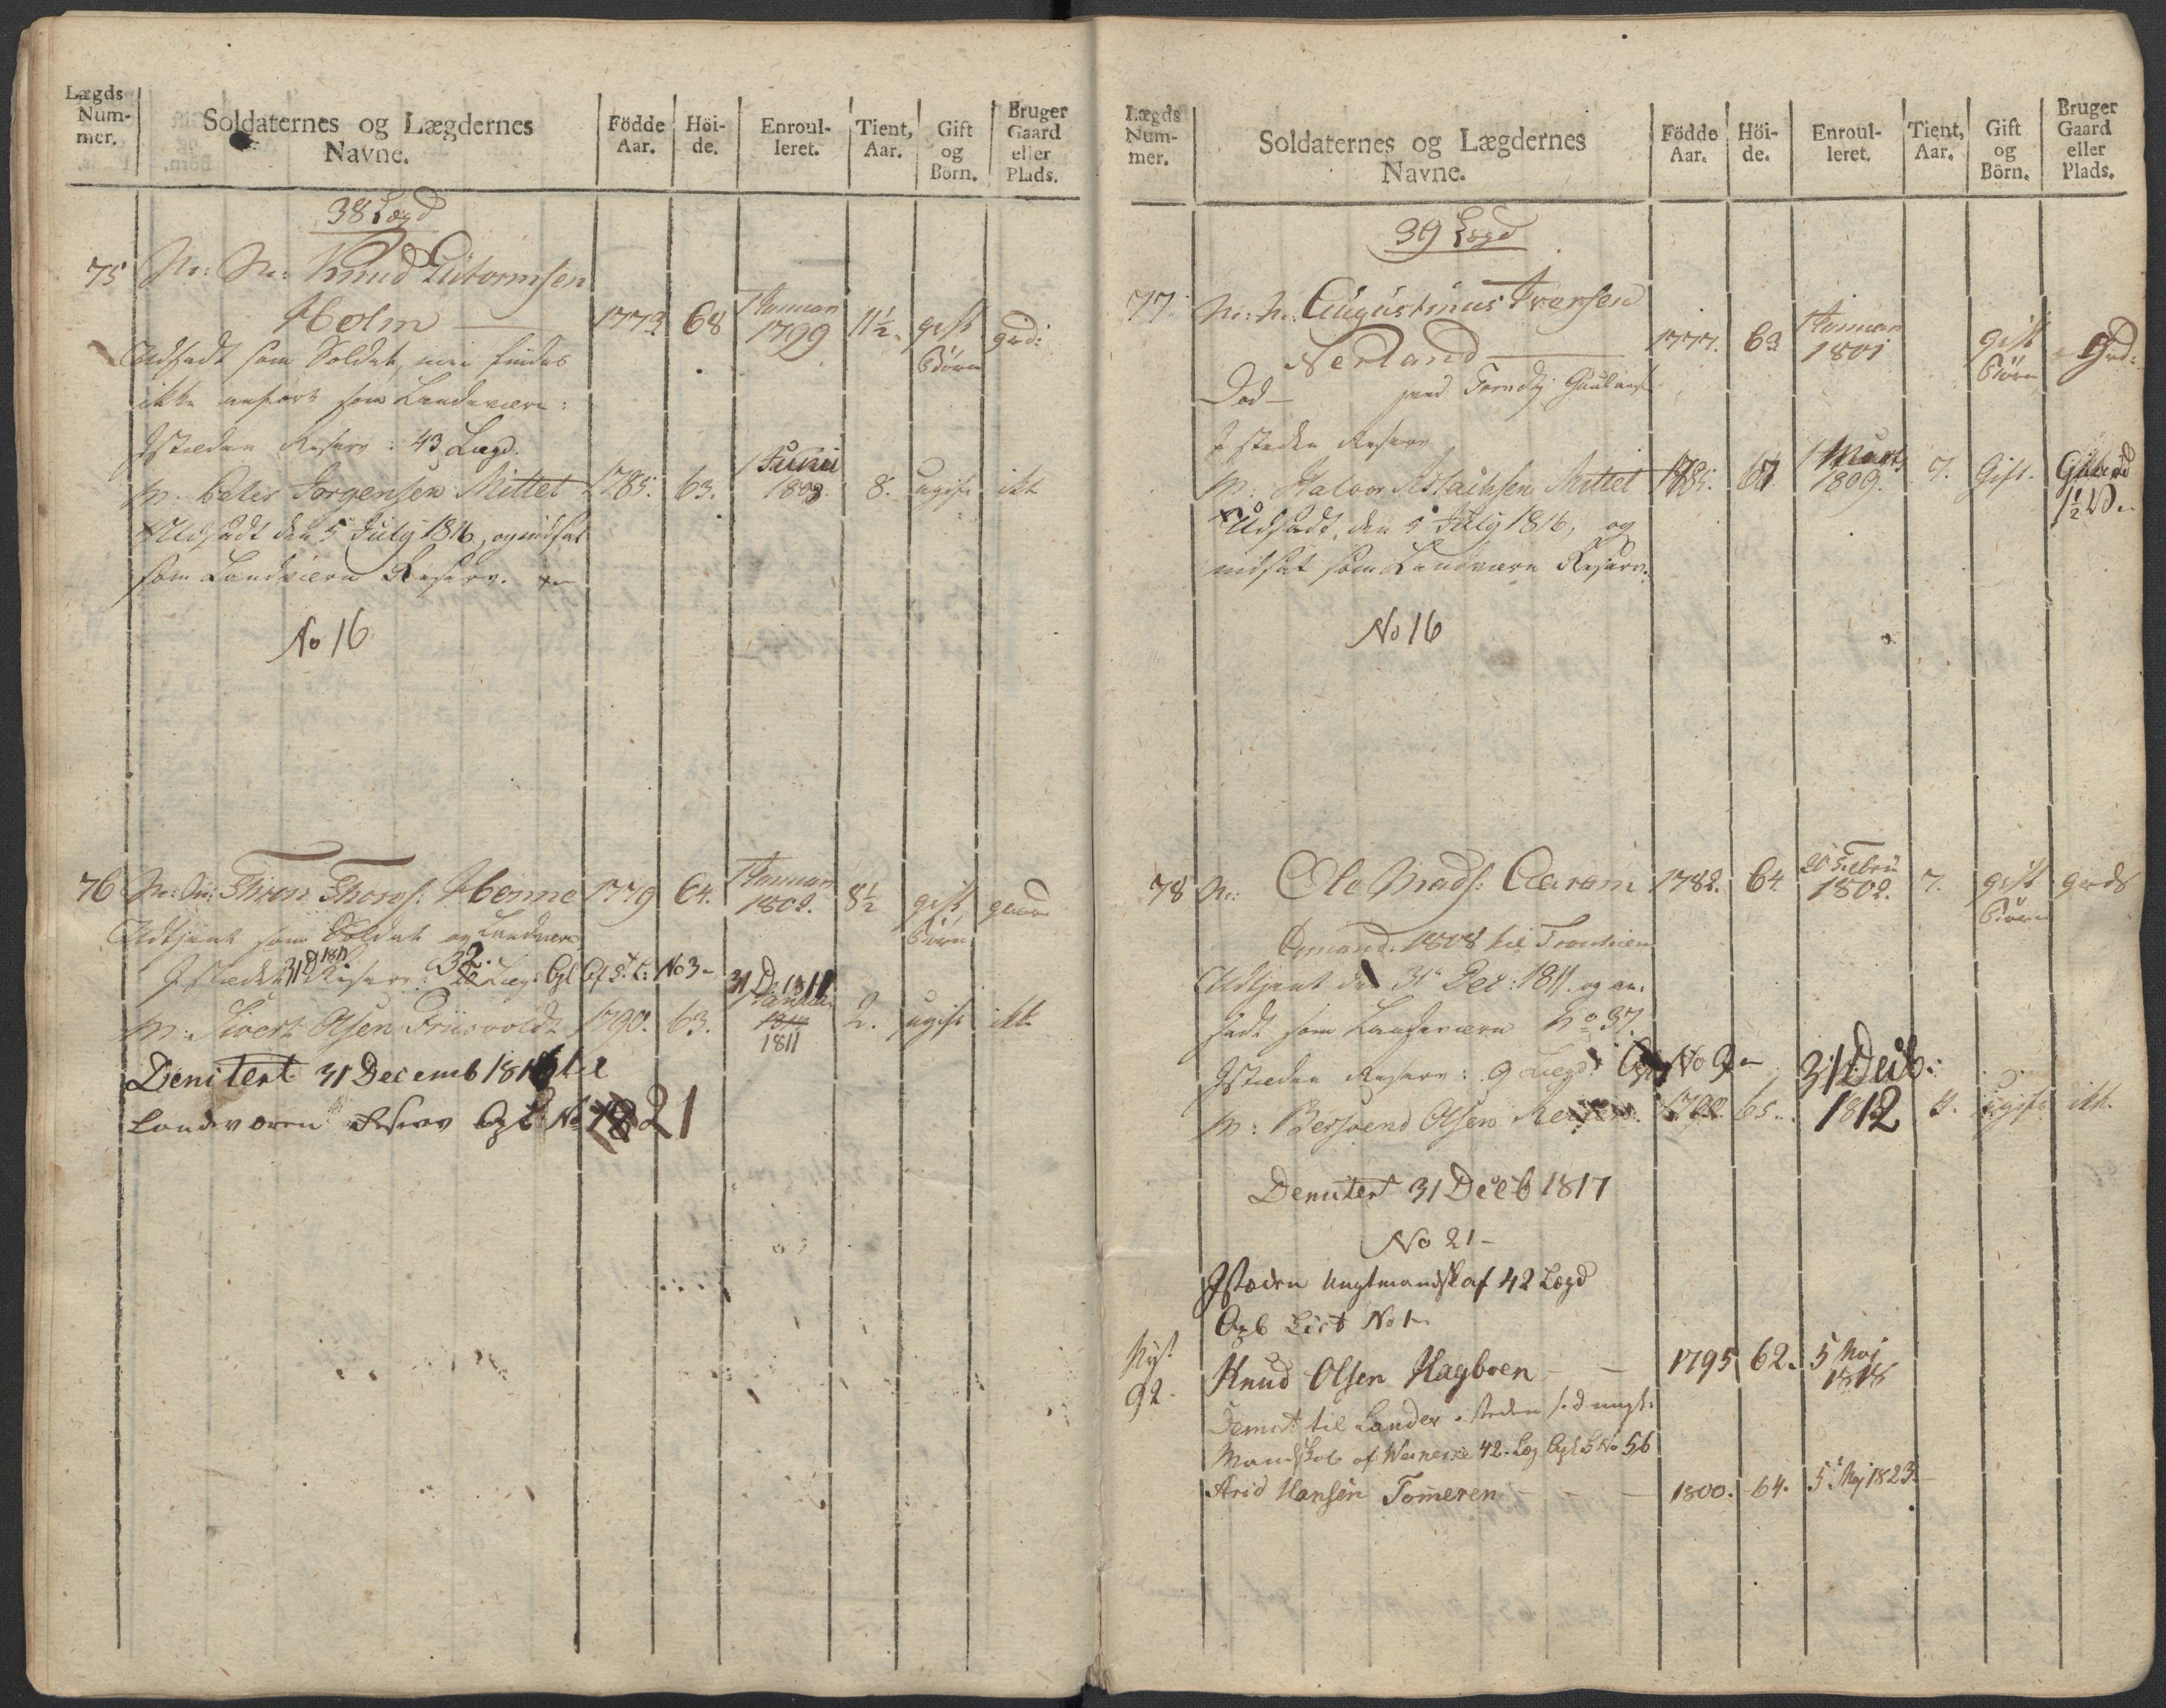 Lægds Num- mer.
Soldaternes og Lægdernes Navne.
Födde Aar.
Höi- de.
Enroul- leret.
Tient, Aar.
Gift og Börn.
Bruger Gaard eller Plads.
38 Lægd
75 Knud Guttormsen
Holm 1773 68 1 Januar 1799 11½ gift Börn grd:
Udsadt som Soldat, men findes
ikke anført som Landeværn:
Istæden Reserv: 43 Lægd.
N. Peter Jørgensen Mittet 1785. 63. 1 Junii 1808. 8. ugift ikke
Udsadt den 5 July 1816, og indsat
som Landværn Reserv.
No 16
76 Thron Thorgs: Henne 1779 64. 1 Januar 1802. 8½ gift Börn gaard
Udtjent som Soldat og Landværn
Istædet 31 D 1811 Reserv: 32 Lægd Agl No 3
N. Sivert Olsen Friisvoldt 1790. 63. 31 D 1811 1811 2. ugift ikke
Demitert 31 Decemb 181 til
Landværn Reserv No 21
Lægds Num- mer.
Soldaternes og Lægdernes Navne.
Födde Aar.
Höi- de.
Enroul- leret.
Tient, Aar.
Gift og Börn.
Bruger Gaard eller Plads.
39 Lægd
77. N: N. Augustinus Iversen
Nerland 1777. 63 1 Januar 1801 gift Börn Grd:
Död
I steden Reserv
N: Halvor Aslachsen Mittet 1785. 67 1 Marts 1809. 7. Gift. 1½ W.
Udsadt, den 5 July 1816, og
indsat som Landværn Reserv.
No 16
78 N: Ole Mads: Aaram 1782. 64. 20 Febru 1802. 7. gift Börn gaards
1808 til Tronhiem
Udtjent den 31 Dec: 1811. og an-
sadt som Landeværn No 37.
Istæden Reserv: 9 Lægd No 9
N: Bersvend Olsen 1792 65. 31 Decb: 1812 4. ugift ikke
Demitert 31 Decb 1817
No 21-
Istæden Ungtmandsk af 42 Lægd
List No 1
Nyt 92. Knud Olsen Hagboen 1795 62. 5 Maj 1818
Demit til Landev isteden ungt:
Mandskab af 42. Læg No 56
Arid Hansen Tomeren 1800. 64. 5 Maj 1823